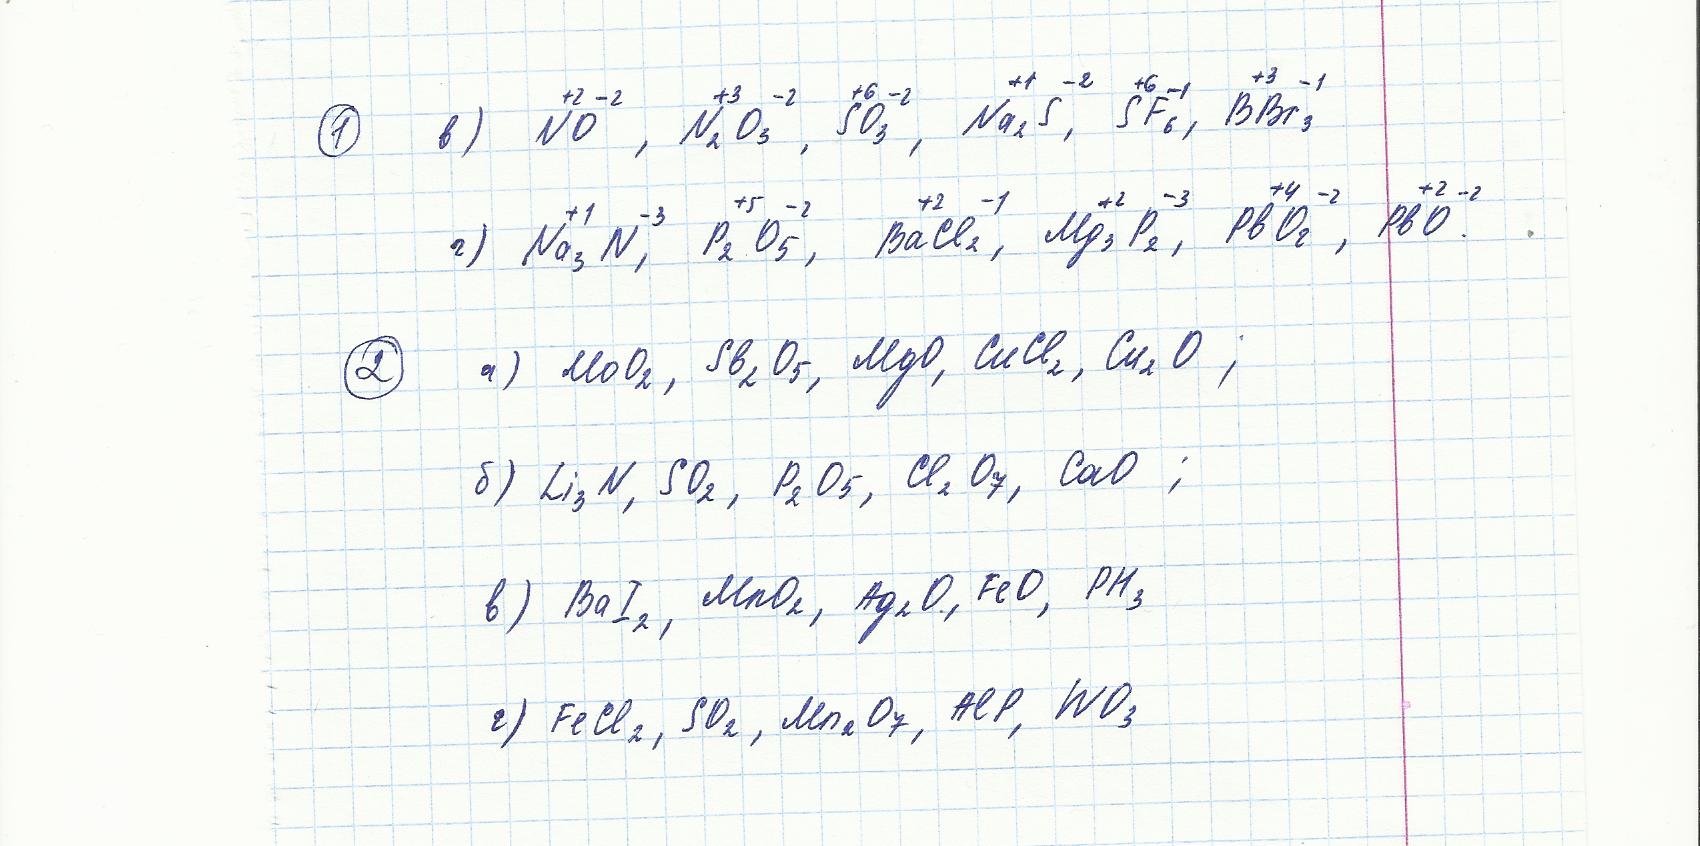 ① в) N⁺²O⁻², N₂⁺³O₃⁻², S⁺⁶O₃⁻², Na₂⁺¹S⁻², S⁺⁶F₆⁻¹, B⁺³Br₃⁻¹
г) Na₃⁺¹N⁻³, P₂⁺⁵O₅⁻², Ba⁺²Cl₂⁻¹, Mg₃⁺²P₂⁻³, Pb⁺⁴O₂⁻², Pb⁺²O⁻².
② а) MoO₂, Sb₂O₅, MgO, CuCl₂, Cu₂O ;
б) Li₃N, SO₂, P₂O₅, Cl₂O₇, CaO ;
в) BaI₂, MnO₂, Ag₂O, FeO, PH₃
г) FeCl₂, SO₂, Mn₂O₇, AlP, WO₃